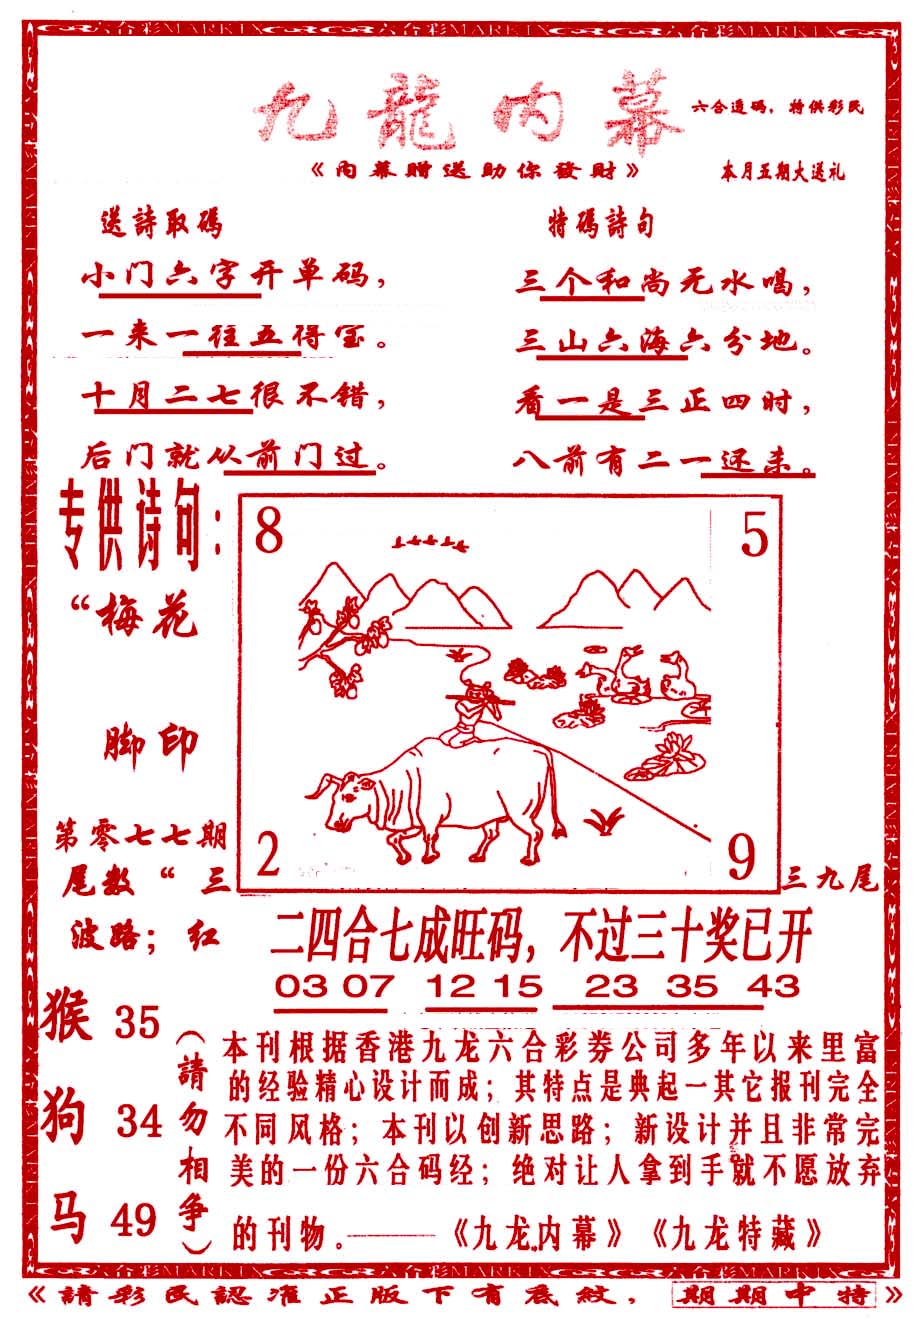 六合彩MARK
九龍内幕
六合透码，特供彩民
《内幕贈送助你發财》
本月五期大送礼
送詩取碼
小门六字开单码，
一来一往五得宝。
十月二七很不错，
后门就从前门过。
特碼詩句
三个和尚无水喝，
三山六海六分地。
看一是三正四时，
八前有二一还来。
专供诗句：
“梅花
脚印
8
5
2
9
第零七七期
尾数“三
三九尾
波路；红
二四合七成旺码，不过三十奖已开
03 07 12 15 23 35 43
猴 35
狗 34
马 49
（請勿相争）
本刊根据香港九龙六合彩劵公司多年以来里富
的经验精心设计而成；其特点是典起一其它报刊完全
不同风格；本刊以创新思路；新设计并且非常完
美的一份六合码经；绝对让人拿到手就不愿放弃
的刊物。——《九龙内幕》《九龙特藏》
《請彩民認准正版下有底紋，期期中特》